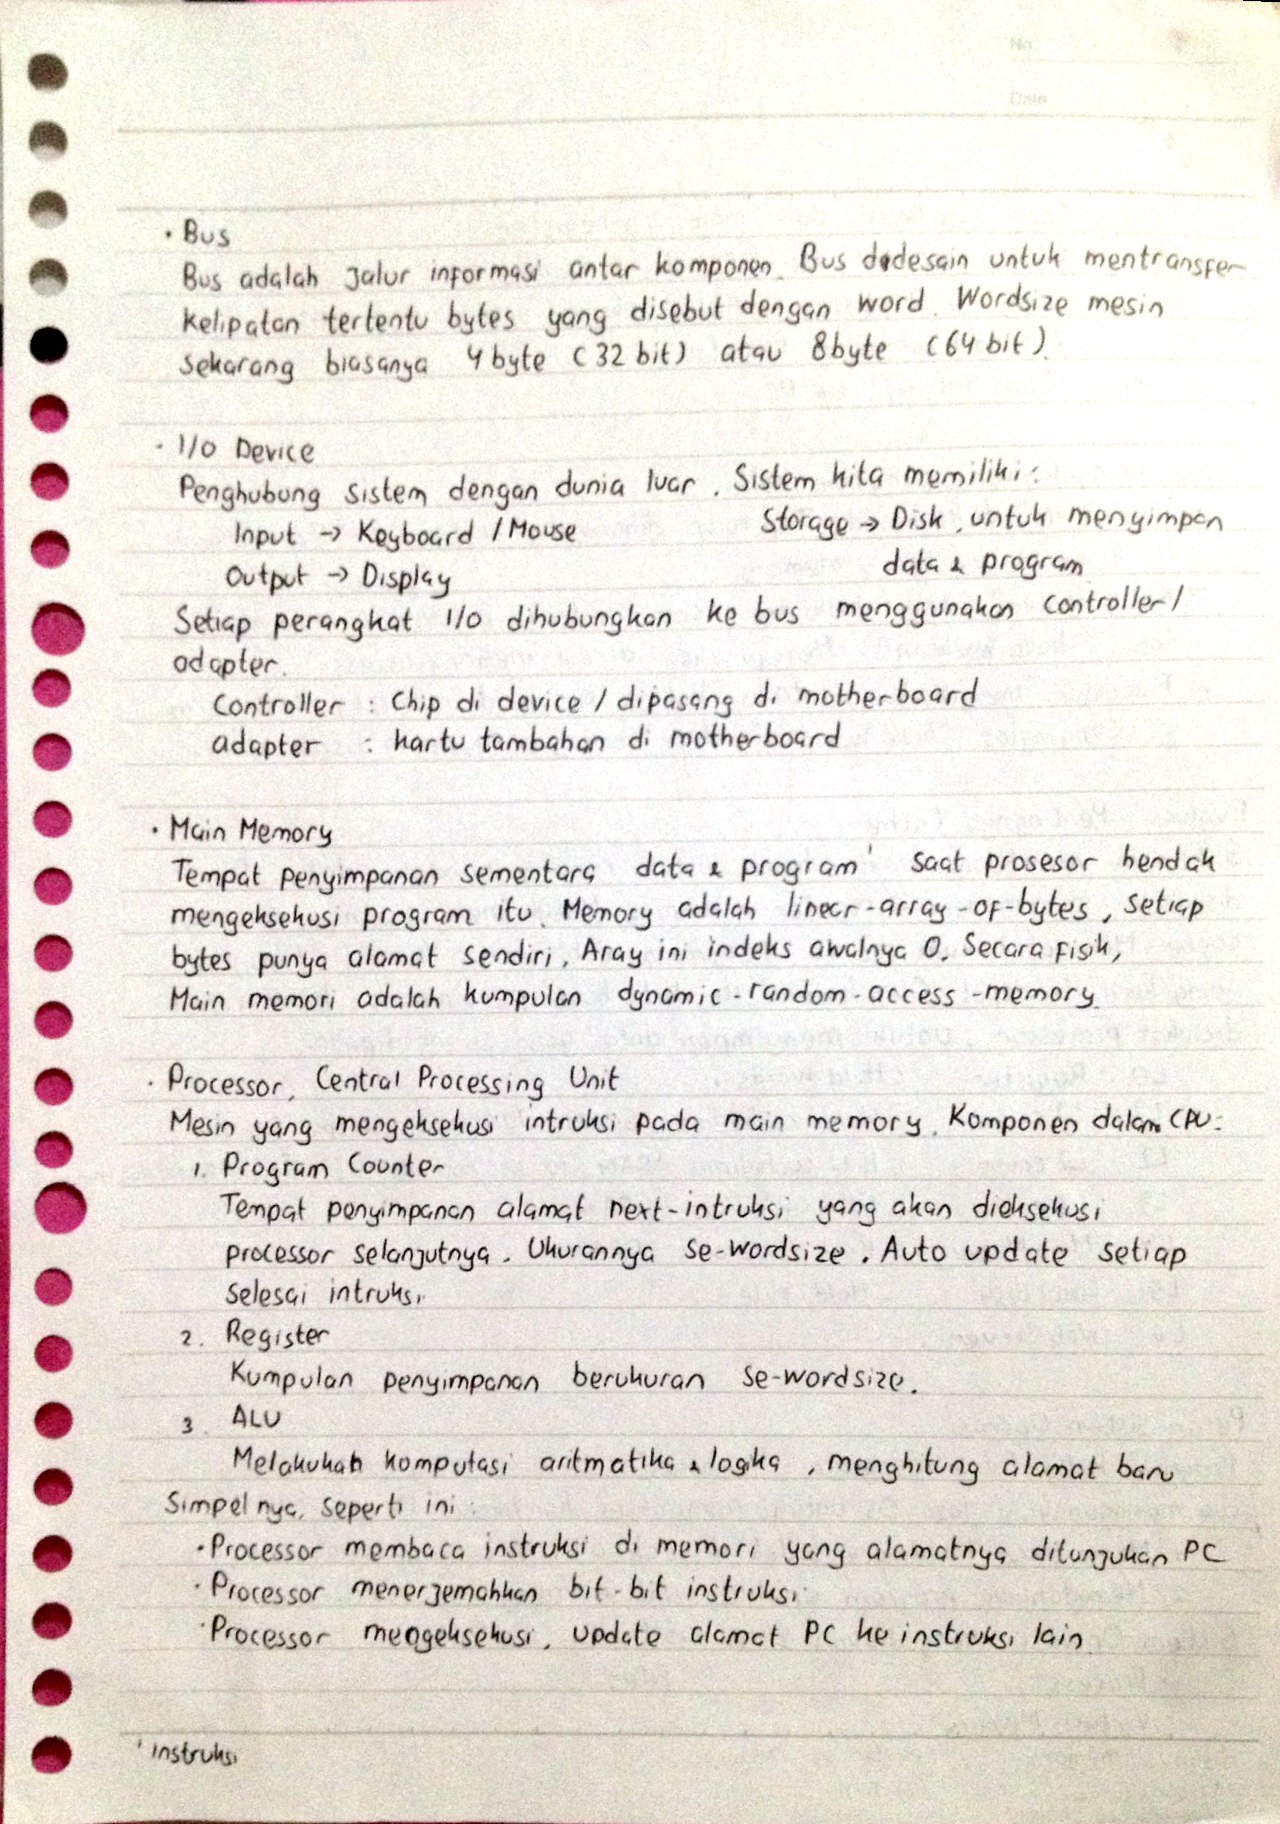 No
Date
· Bus
Bus adalah jalur informasi antar komponen. Bus didesain untuk mentransfer
kelipatan tertentu bytes yang disebut dengan word. Wordsize mesin
sekarang biasanya 4 byte (32 bit) atau 8byte (64 bit).
· I/O Device
Penghubung sistem dengan dunia luar. Sistem kita memiliki:
Input → Keyboard / Mouse
Storage → Disk, untuk menyimpan
Output → Display
data & program
Setiap perangkat I/O dihubungkan ke bus menggunakan controller/
adapter.
Controller : Chip di device / dipasang di motherboard
adapter : kartu tambahan di motherboard
· Main Memory
Tempat penyimpanan sementara data & program' saat prosesor hendak
mengeksekusi program itu. Memory adalah linear-array-of-bytes, setiap
bytes punya alamat sendiri. Aray ini indeks awalnya 0. Secara fisik,
Main memori adalah kumpulan dynamic-random-access-memory.
· Processor, Central Processing Unit
Mesin yang mengeksekusi intruksi pada main memory. Komponen dalam CPU:
1. Program Counter
Tempat penyimpanan alamat next-intruksi yang akan dieksekusi
processor selanjutnya. Ukurannya se-wordsize. Auto update setiap
selesai intruksi.
2. Register
Kumpulan penyimpanan berukuran se-wordsize.
3. ALU
Melakukan komputasi aritmatika & logika, menghitung alamat baru
Simpelnya, seperti ini :
· Processor membaca instruksi di memori yang alamatnya ditunjukan PC
· Processor menerjemahkan bit-bit instruksi
· Processor mengeksekusi, update alamat PC ke instruksi lain
' instruksi